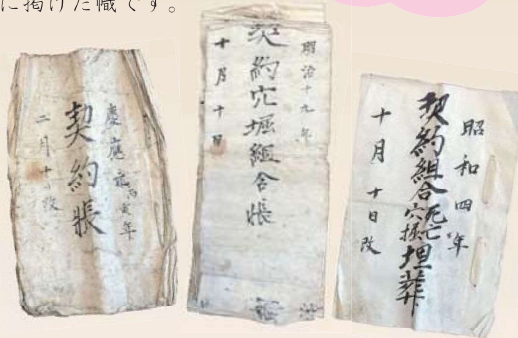 に掲げた幟です。
慶應二丙寅年
契約帳
二月十日改
明治十九年
契約穴堀組合帳
十月十日
昭和四年
契約組合死亡穴掾埋葬
十月十日改